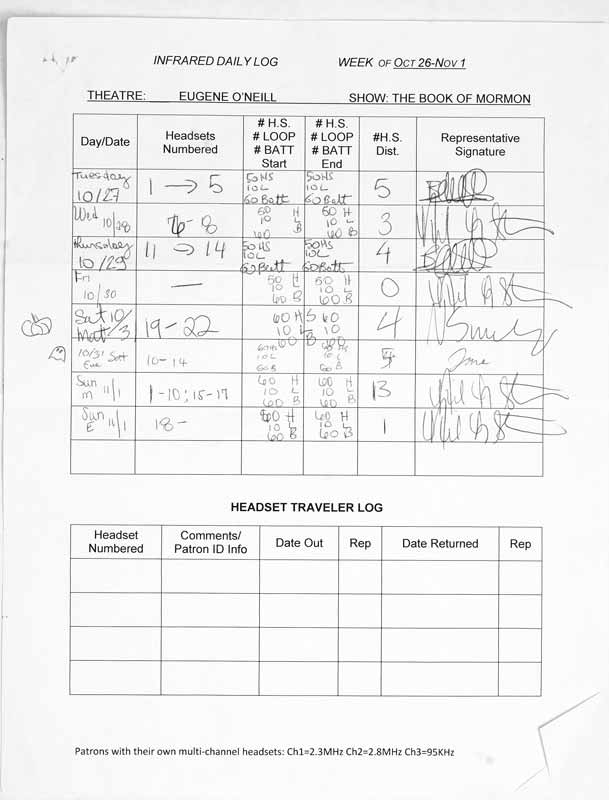 INFRARED DAILY LOG WEEK OF OCT 26-NOV 1
THEATRE: EUGENE O'NEILL SHOW: THE BOOK OF MORMON
Day/Date Headsets Numbered # H.S. # LOOP # BATT Start # H.S. # LOOP # BATT End #H.S. Dist. Representative Signature
Tuesday 10/27 1 → 5 50 HS 10 L 60 Batt 50 HS 10 L 60 Batt 5
Wed 10/28 6-8 50 H 10 L 60 B 50 H 10 L 60 B 3
Thursday 10/29 11 → 14 50 HS 10 L 60 Batt 50 HS 10 L 60 Batt 4
Fri 10/30 — 50 H 10 L 60 B 50 H 10 L 60 B 0
Sat 10/31 Mat 19-22 60 H 10 L 60 B 60 10 60 B 4
10/31 Sat Eve 10-14 60 HS 10 L 60 B 10 L 60 B 5
Sun M 11/1 1-10; 15-17 60 H 10 L 60 B 60 H 10 L 60 B 13
Sun E 11/1 18- 60 H 10 L 60 B 60 H 10 L 60 B 1
HEADSET TRAVELER LOG
Headset Numbered Comments/ Patron ID Info Date Out Rep Date Returned Rep
Patrons with their own multi-channel headsets: Ch1=2.3MHz Ch2=2.8MHz Ch3=95KHz